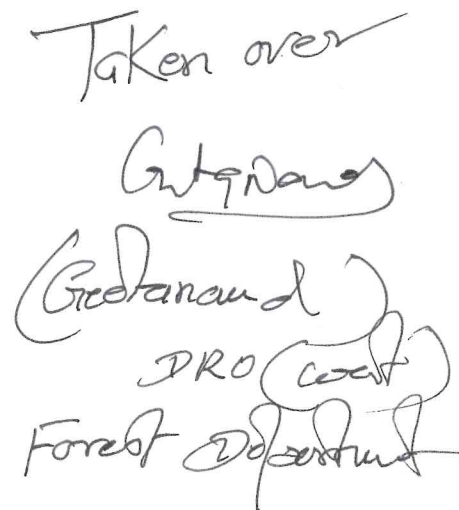 Taken over
(Geetanand)
DRO (West)
Forest Department